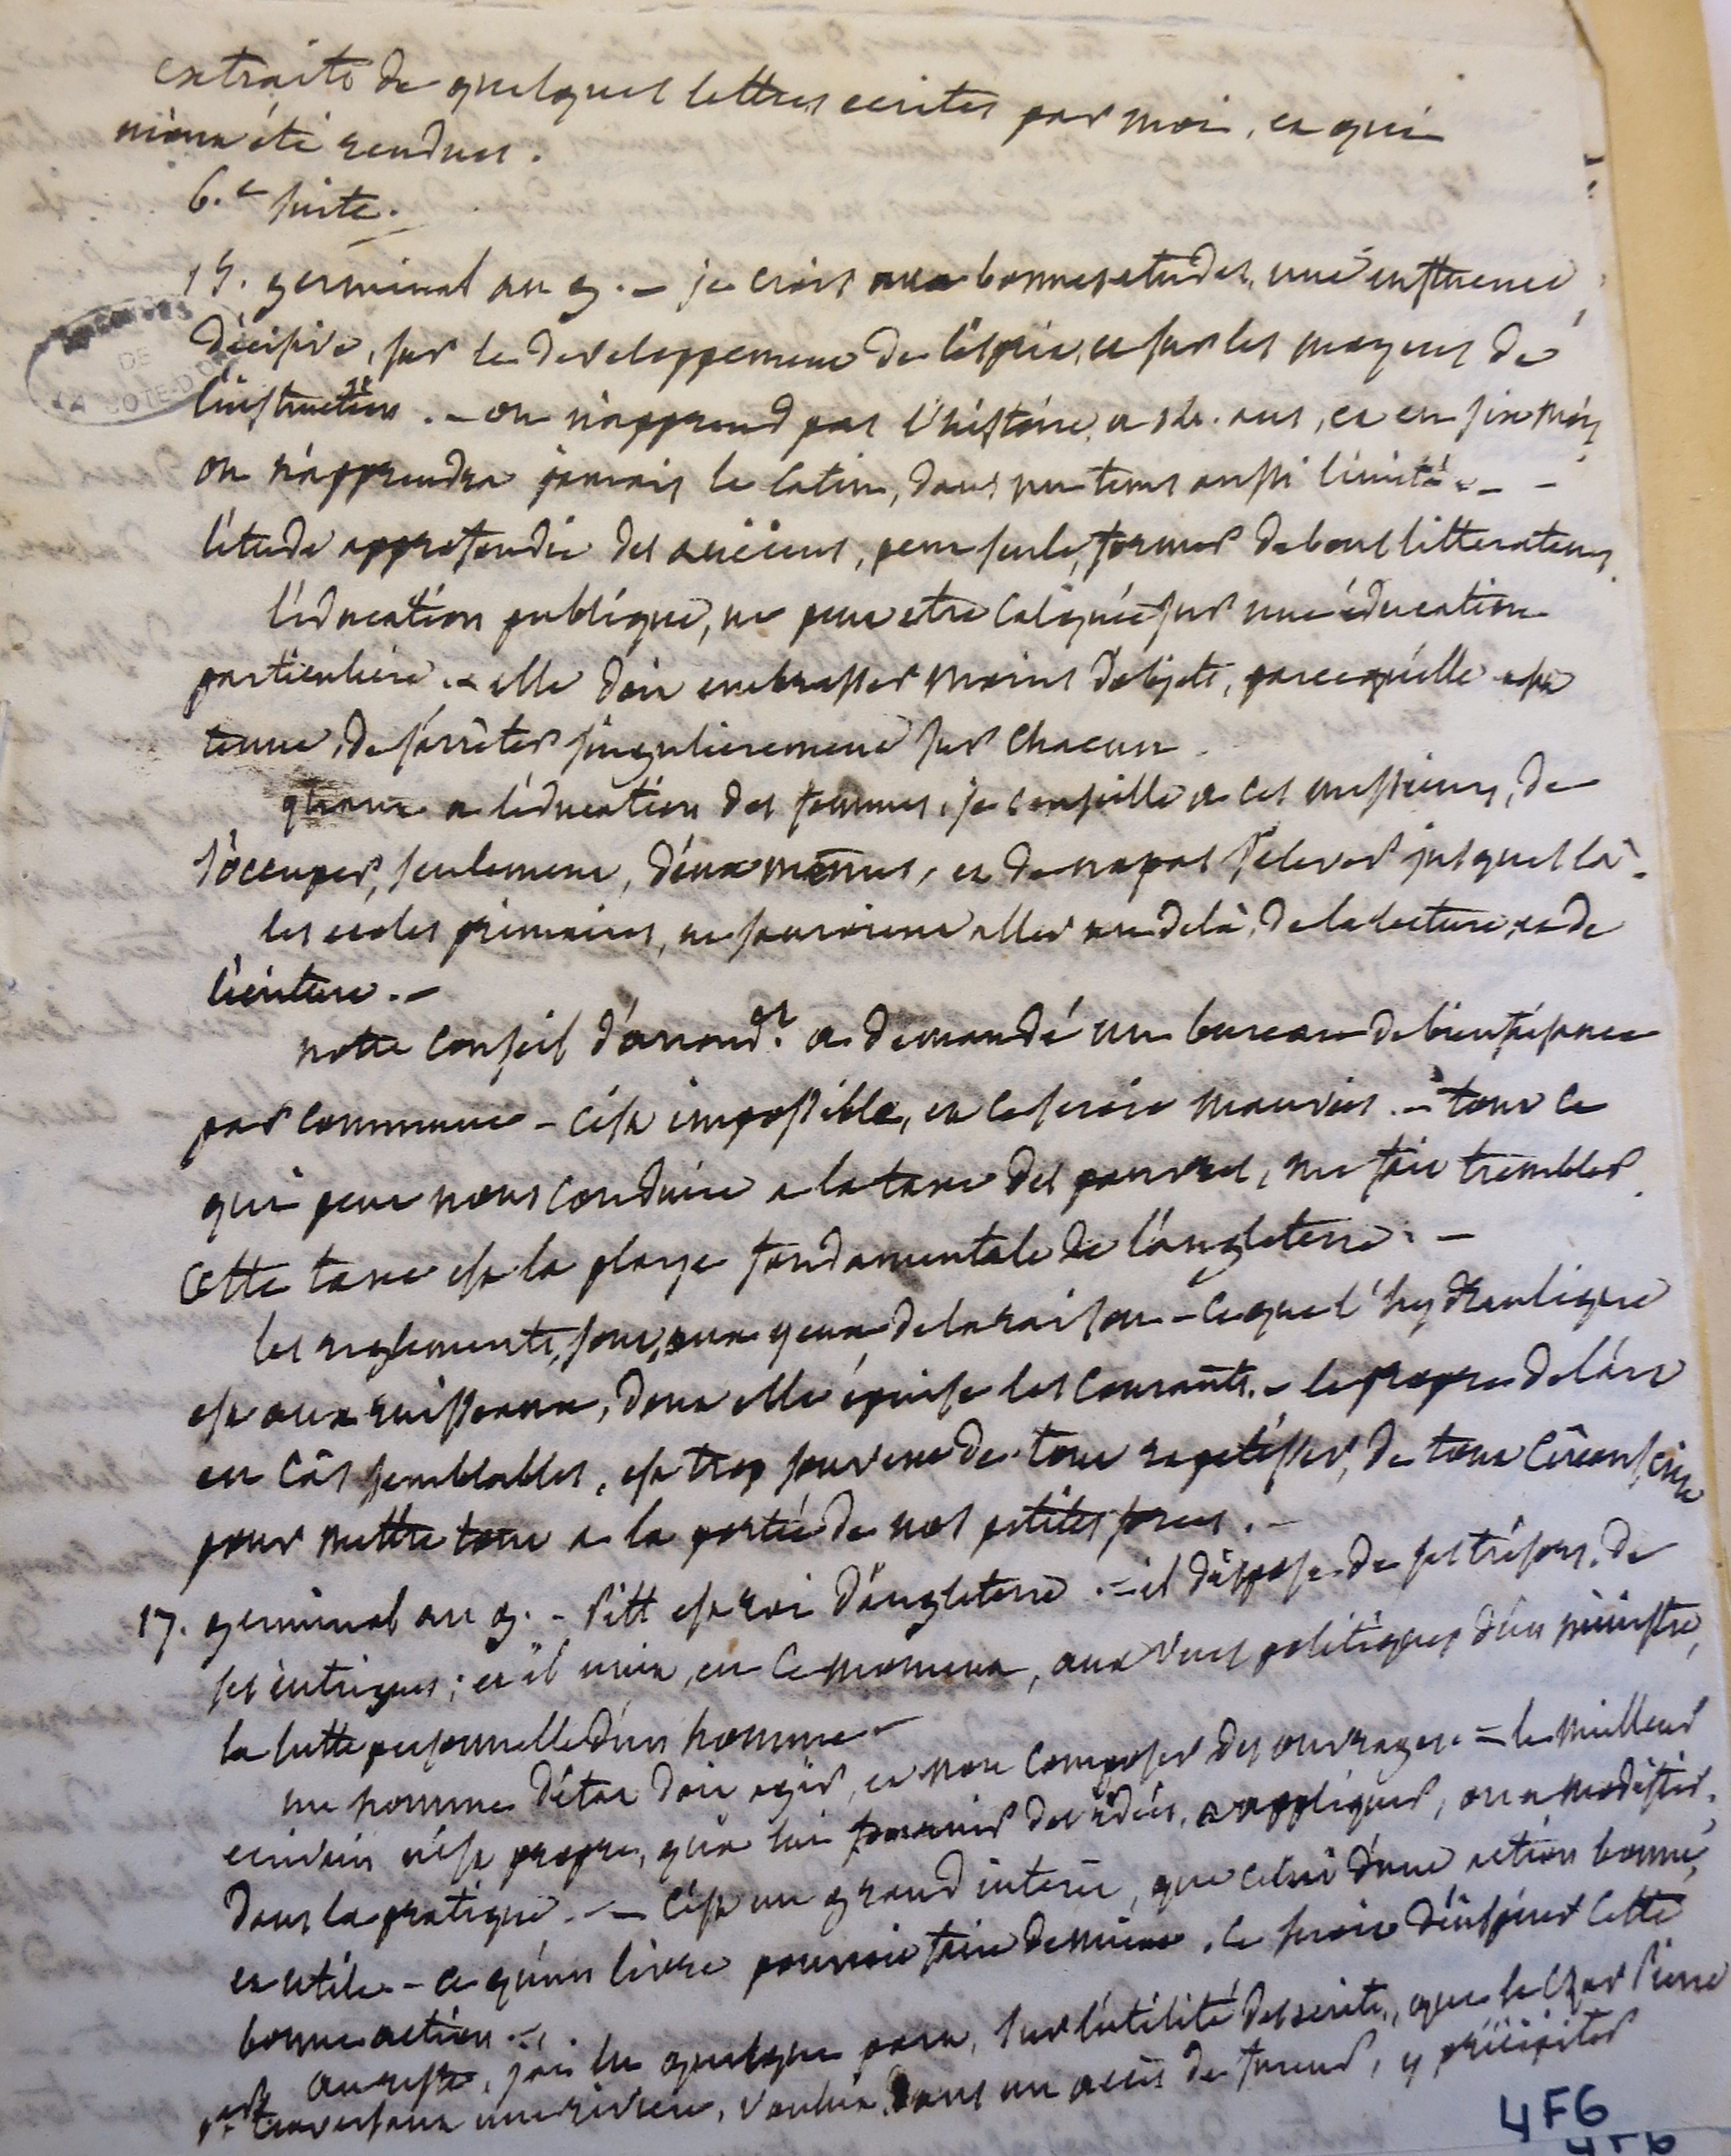 extraits de quelques lettres ecrites par moi, et qui
m'ont été rendues.
6.e suite.
15. germinal an 9. – je crois aux bonnes etudes, une influence
décisive, sur le developpement de l'esprit, et sur les moyens de
l'instruction. – on n'apprend pas l'histoire, a ans, et en six mois
on n'apprendra jamais le latin, dans un tems aussi limité. – –
l'etude approfondie des anciens, peut seule, former de bons litterateurs.
l'éducation publique, ne peut etre calquée sur une éducation
particuliere. – elle doit embrasser moins d'objets, parcequ'elle est
tenue, de s'arrêter singulierement sur chacun.
quant a l'éducation des femmes, je conseille a ces messieurs, de
s'occuper, seulement, d'eux memes, et de ne pas s'elever jusques là.
les ecoles primaires, ne sauroient aller au delà, de la lecture, et de
l'écriture. –
notre conseil d'arrond.et a demandé un bureau de bienfaisance
par commune – c'est impossible, et ce seroit mauvais. – tout ce
qui peut nous conduire a la taxe des pauvres, me fait trembler.
Cette taxe est la playe fondamentale de l'angleterre. –
les reglements, sont, aux yeux de la raison – ce que l'hydraulique
est aux ruisseaux, dont elle épuise les courants. – le propre de l'art
en cas semblables, est trop souvent de tout rapetisser, de tout circonscrire
pour mettre tout a la portée de nos petites forces. –
17. germinal an 9. – Pitt est roi d'angleterre. – il dispose de ses trésors, de
ses intrigues; et il unit, en ce moment, aux vues politiques d'un ministre,
la lutte personnelle d'un homme –
un homme d'état doit agir, et non composer des ouvrages. – le meilleur
ecrivain n'est propre, qu'a lui fournir des idées, a appliquer, ou a modifier,
dans la pratique. – – c'est un grand interet, que celui d'une action bonne,
et utile – ce qu'un livre pourroit faire de mieux, ce seroit d'inspirer cette
bonne action. –
au reste, j'ai lu quelque part, sur l'utilité des ecrits, que le Czar Pierre
1.er traversant une riviere, voulut, dans un accès de fureur, y précipiter
ARCHIVES
DE
LA COTE-D'OR
4F6